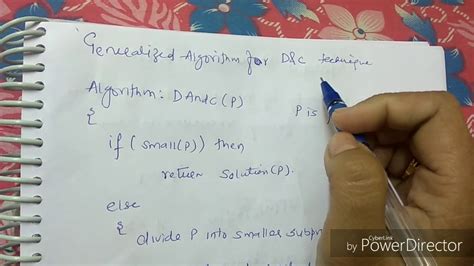 Genealized Algorithm for D&C technique
Algorithm: DAndC(P)
P is
{
if (small(P)) then
return solution(P).
else
{
divide P into smaller subpr
CyberLink
by PowerDirector